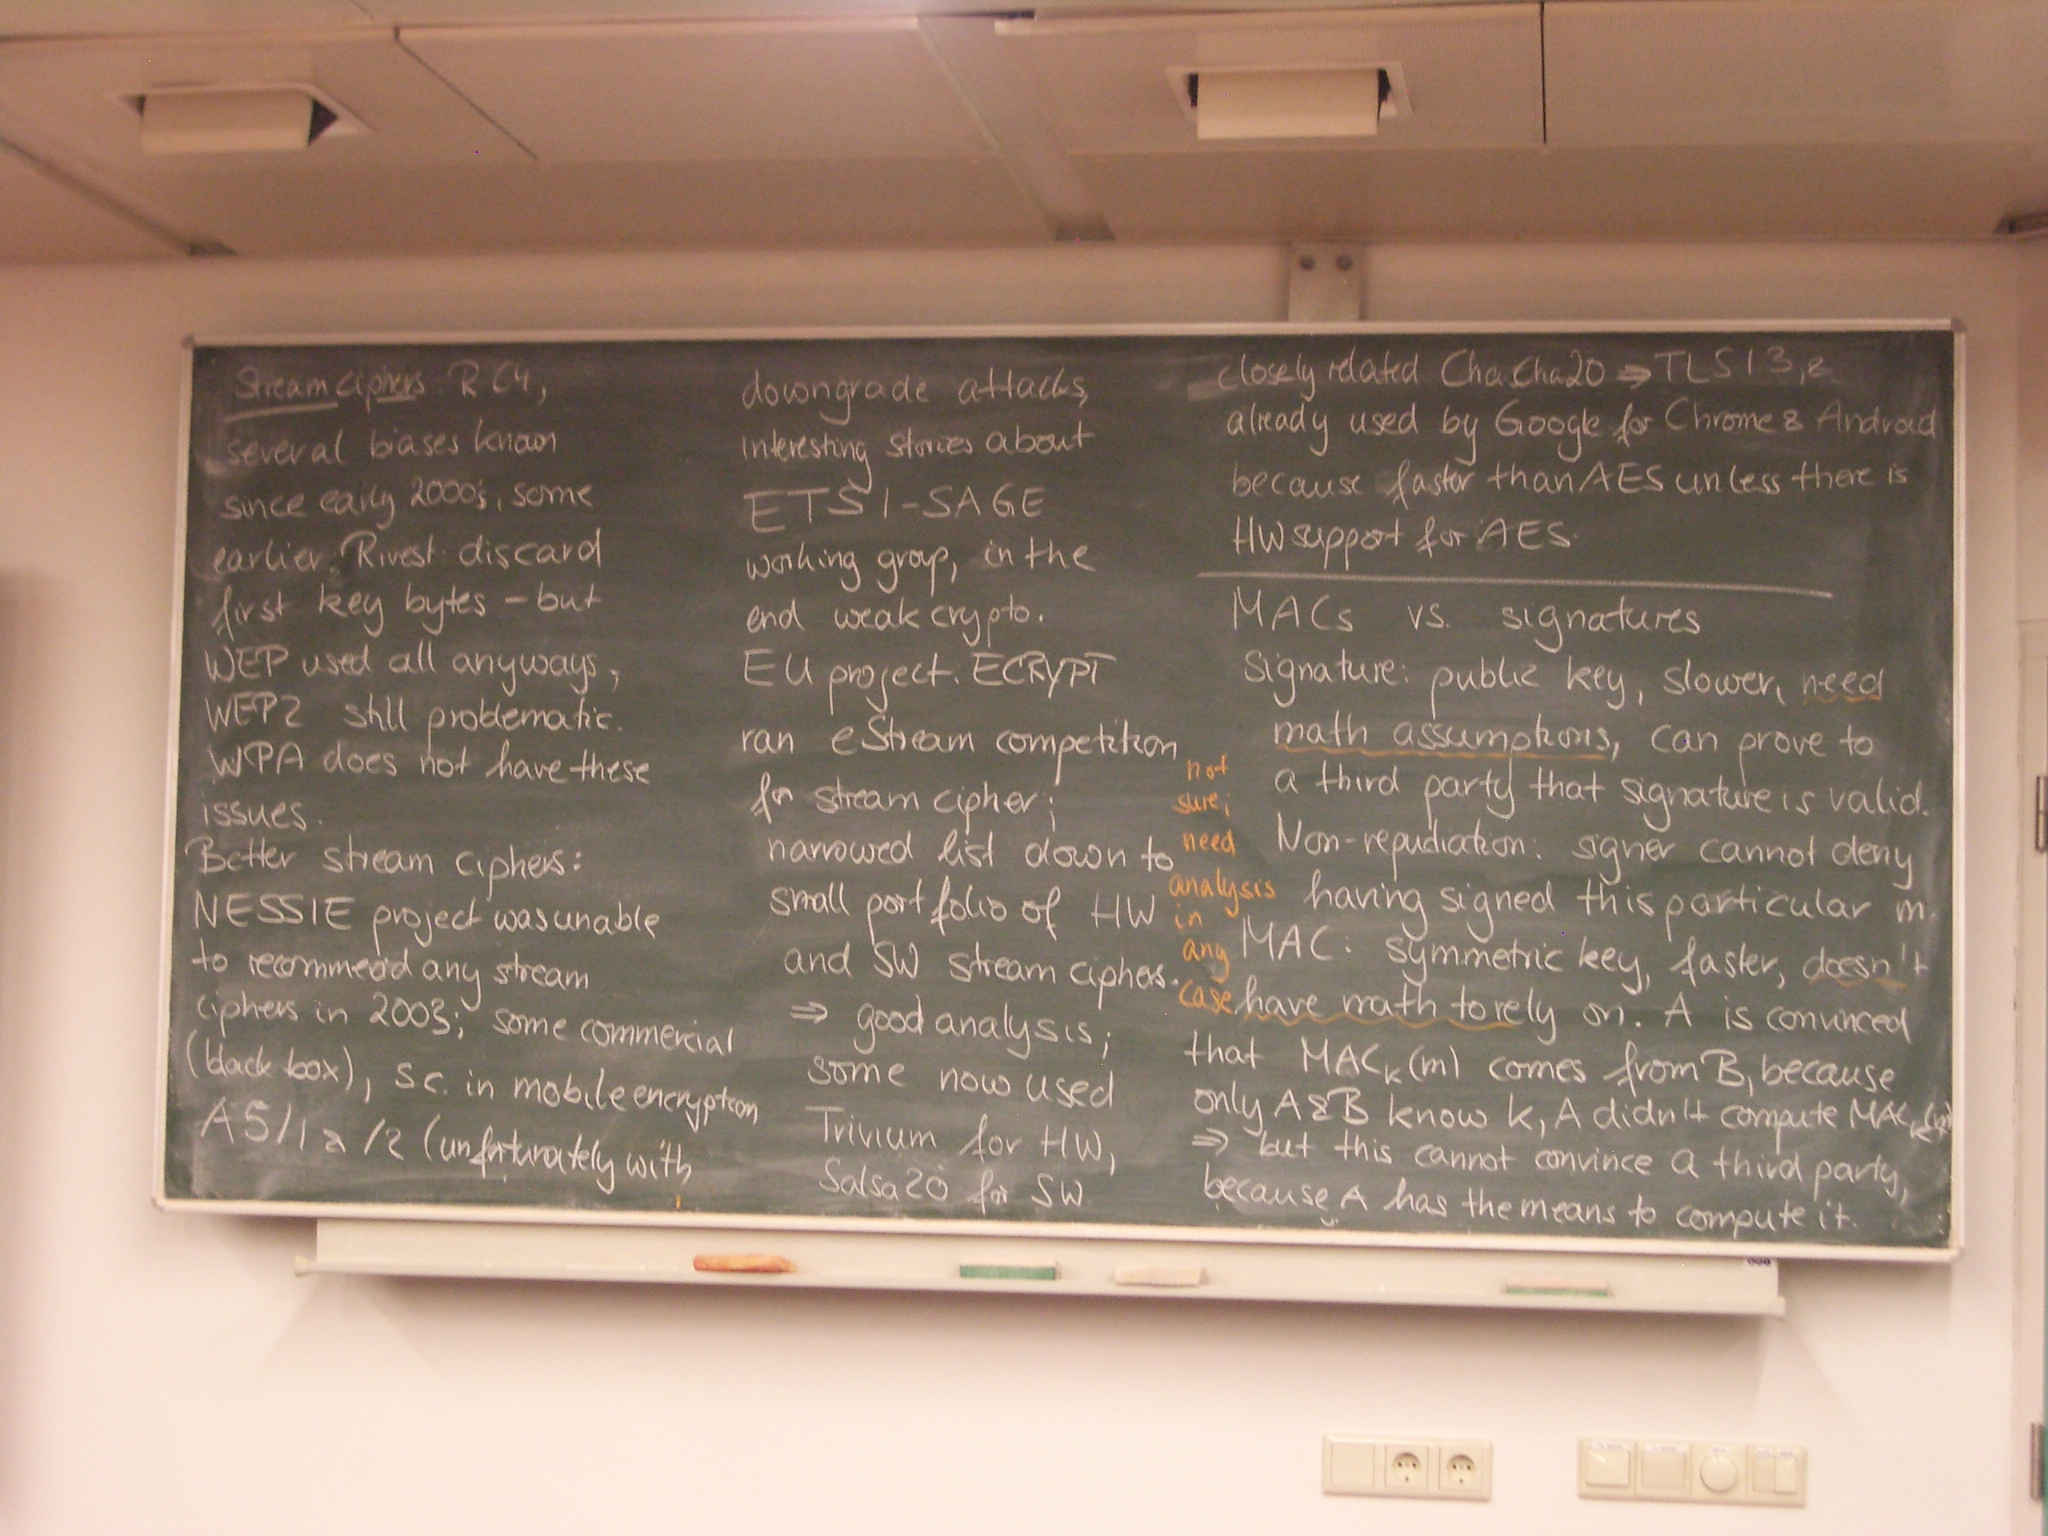 Stream ciphers: RC4,
several biases known
since early 2000's, some
earlier. Rivest: discard
first key bytes – but
WEP used all anyways;
WEP2 still problematic.
WPA does not have these
issues.
Better stream ciphers:
NESSIE project was unable
to recommend any stream
ciphers in 2003; some commercial
(black box), s.c. in mobile encryption
A5/1 & /2 (unfortunately with
downgrade attacks,
interesting stories about
ETSI-SAGE
working group, in the
end weak crypto.
EU project. ECRYPT
ran eStream competition
for stream cipher;
narrowed list down to
small portfolio of HW
and SW stream ciphers.
⇒ good analysis;
some now used
Trivium for HW,
Salsa20 for SW
closely related ChaCha20 ⇒ TLS 1 3, &
already used by Google for Chrome & Android
because faster than AES unless there is
HW support for AES.
MACs vs. signatures
Signature: public key, slower, need
math assumptions, can prove to
a third party that signature is valid.
Non-repudiation: signer cannot deny
having signed this particular m.
MAC: symmetric key, faster, doesn't
have math to rely on. A is convinced
that MACₖ(m) comes from B, because
only A & B know k, A didn't compute MACₖ(m)
⇒ but this cannot convince a third party,
because A has the means to compute it.
not
sure;
need
analysis
in
any
case